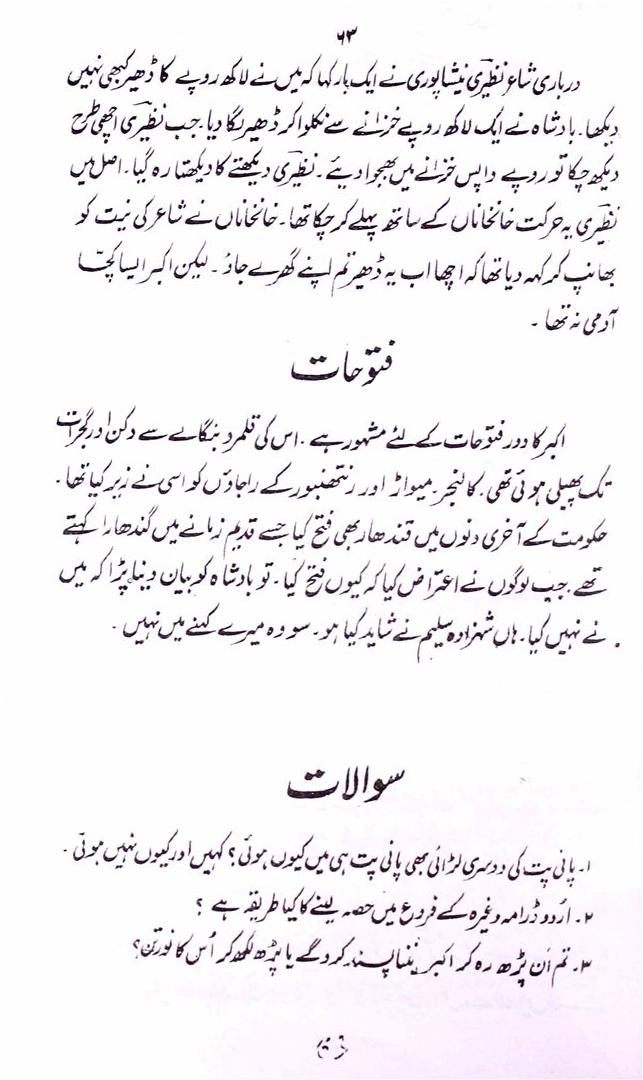 ۶۳
درباری شاعر نظیری نیشاپوری نے ایک بار کہا کہ میں نے لاکھ روپے کا ڈھیر کبھی نہیں
دیکھا۔ بادشاہ نے ایک لاکھ روپے خزانے سے نکلوا کر ڈھیر لگا دیا۔ جب نظیری اچھی طرح
دیکھ چکا تو روپے واپس خزانے میں بھجوا دیئے۔ نظیری دیکھتے کا دیکھتا رہ گیا۔ اصل میں
نظیری یہ حرکت خانخاناں کے ساتھ پہلے کر چکا تھا۔ خانخاناں نے شاعر کی نیت کو
بھانپ کر کہہ دیا تھا کہ اچھا اب یہ ڈھیر تم اپنے گھر لے جاؤ۔ لیکن اکبر ایسا کچا
آدمی نہ تھا۔
فتوحات
اکبر کا دور فتوحات کے لئے مشہور ہے۔ اس کی قلمرو بنگالے سے دکن اور گجرات
تک پھیلی ہوئی تھی۔ کالنجر۔ میواڑ اور رنتھنبور کے راجاؤں کو اسی نے زیر کیا تھا۔
حکومت کے آخری دنوں میں قندھار بھی فتح کیا جسے قدیم زمانے میں گندھارا کہتے
تھے جب لوگوں نے اعتراض کیا کہ کیوں فتح کیا۔ تو بادشاہ کو بیان دینا پڑا کہ میں
نے نہیں کیا۔ ہاں شہزادہ سلیم نے شاید کیا ہو۔ سو وہ میرے کہنے میں نہیں۔
سوالات
۱۔ پانی پت کی دوسری لڑائی بھی پانی پت ہی میں کیوں ہوئی؟ کہیں اور کیوں نہیں ہوئی۔
۲۔ اردو ڈرامہ وغیرہ کے فروغ میں حصہ لینے کا کیا طریقہ ہے؟
۳۔ تم ان پڑھ رہ کر اکبر بننا پسند کرو گے یا پڑھ لکھ کر اُس کا نورتن؟